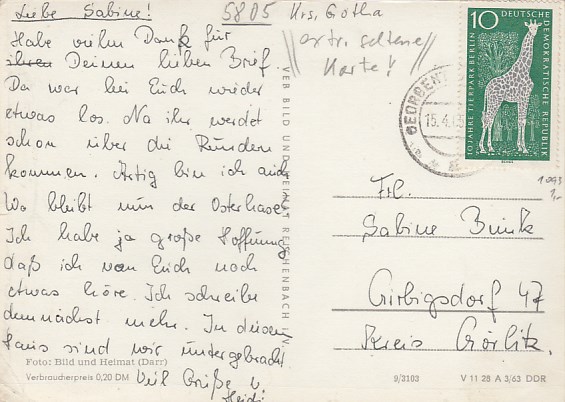 Liebe Sabine!
Habe vielen Dank für
ihren Deinen lieben Brief.
Da war bei Euch wieder
etwas los. Na ihr werdet
schon über die Runden
kommen. Artig bin ich auch
Wo bleibt nun der Osterhase?
Ich habe ja große Hoffnung
daß ich von Euch noch
etwas höre. Ich schreibe
demnächst mehr. In diesem
Haus sind wir untergebracht
Viel Grüße v.
Heidi
Foto: Bild und Heimat (Darr)
Verbraucherpreis 0,20 DM
VEB BILD UND HEIMAT REICHENBACH i. V.
5805 Krs. Gotha
extr. seltene
Karte!
10 DEUTSCHE
DEMOKRATISCHE REPUBLIK
10 JAHRE TIERPARK BERLIN
GEORGENT
15.4.65
1093
Frl.
Sabine Bunk
Girbigsdorf 47
Kreis Görlitz.
9/3103 V 11 28 A 3/63 DDR